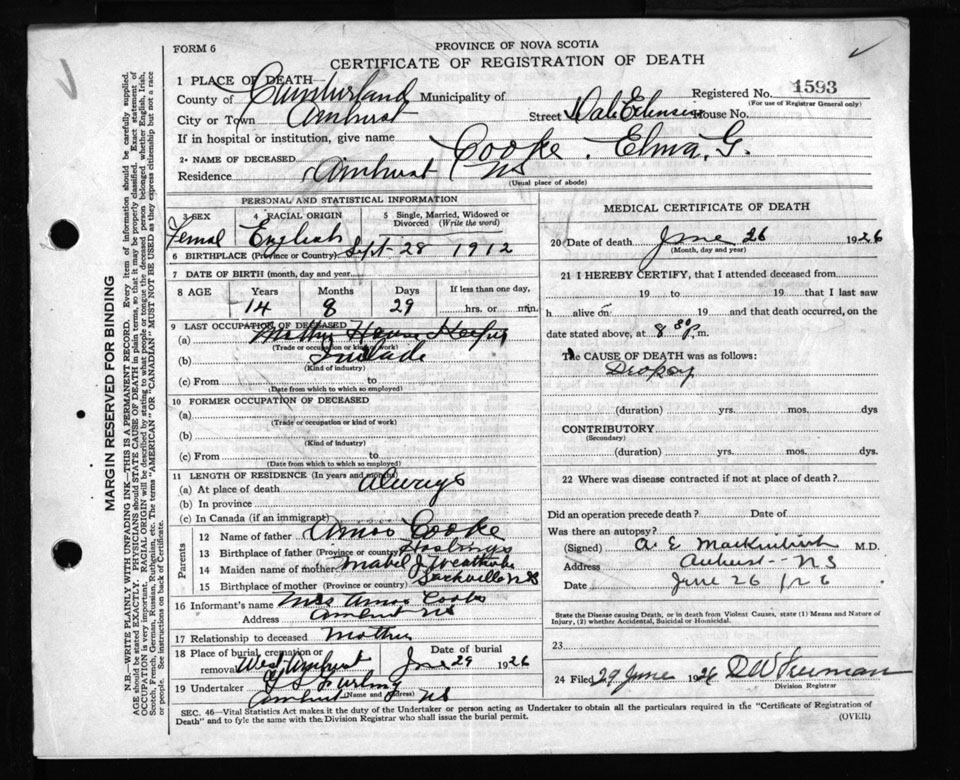 FORM 6
PROVINCE OF NOVA SCOTIA
CERTIFICATE OF REGISTRATION OF DEATH
1 PLACE OF DEATH—
Registered No. 1593
(For use of Registrar General only)
County of Cumberland Municipality of
City or Town Amherst Street Dale House No.
If in hospital or institution, give name
2. NAME OF DECEASED Cooke, Elma, G.
Residence Amherst NS
(Usual place of abode)
PERSONAL AND STATISTICAL INFORMATION
3 SEX 4 RACIAL ORIGIN 5 Single, Married, Widowed or Divorced (Write the word)
Femal English
6 BIRTHPLACE (Province or Country) Sept-28 1912
7 DATE OF BIRTH (month, day and year)
8 AGE Years Months Days If less than one day,
14 8 29 hrs. or min.
9 LAST OCCUPATION OF DECEASED
(a)
(Trade or occupation or kind of work)
(b)
(Kind of industry)
(c) From to
(Date from which to which so employed)
10 FORMER OCCUPATION OF DECEASED
(a)
(Trade or occupation or kind of work)
(b)
(Kind of industry)
(c) From to
(Date from which to which so employed)
11 LENGTH OF RESIDENCE (In years and months)
(a) At place of death Always
(b) In province
(c) In Canada (if an immigrant)
Parents
12 Name of father Amos Cooke
13 Birthplace of father (Province or country) Hastings
14 Maiden name of mother Mabel J
15 Birthplace of mother (Province or country) Sackville NB
16 Informant's name Mrs Amos Cooke
Address Amherst NS
17 Relationship to deceased Mother
18 Place of burial, cremation or removal West Amherst Date of burial June 29 1926
19 Undertaker
(Name and address)
Amherst NS
MEDICAL CERTIFICATE OF DEATH
20 Date of death June 26 1926
(Month, day and year)
21 I HEREBY CERTIFY, that I attended deceased from
19 to 19 that I last saw
h alive on 19 and that death occurred, on
date stated above, at 8 30 P.m.
The CAUSE OF DEATH was as follows:
Dropsy
(duration) yrs. mos. dys
CONTRIBUTORY
(Secondary)
(duration) yrs. mos. dys.
22 Where was disease contracted if not at place of death?
Did an operation precede death? Date of
Was there an autopsy?
(Signed) A. E. M.D.
Address Amherst NS
Date June 26/26
State the Disease causing Death, or in death from Violent Causes, state (1) Means and Nature of
Injury, (2) whether Accidental, Suicidal or Homicidal.
23
24 Filed 29 June 1926 D W Freeman
Division Registrar
SEC. 46—Vital Statistics Act makes it the duty of the Undertaker or person acting as Undertaker to obtain all the particulars required in the "Certificate of Registration of
Death" and to fyle the same with the Division Registrar who shall issue the burial permit.
(OVER)
MARGIN RESERVED FOR BINDING
N.B.—WRITE PLAINLY WITH UNFADING INK—THIS IS A PERMANENT RECORD. Every item of information should be carefully supplied.
AGE should be stated EXACTLY. PHYSICIANS should STATE CAUSE OF DEATH in plain terms, so that it may be properly classified. Exact statement of
OCCUPATION is very important. RACIAL ORIGIN will be described by stating to what people or tongue the deceased person belonged whether English, Irish,
Scotch, French, German, Russian, Ruthenian, etc. The terms "AMERICAN" OR "CANADIAN" MUST NOT BE USED as they express citizenship but not a race
or people. See instructions on back of Certificate.